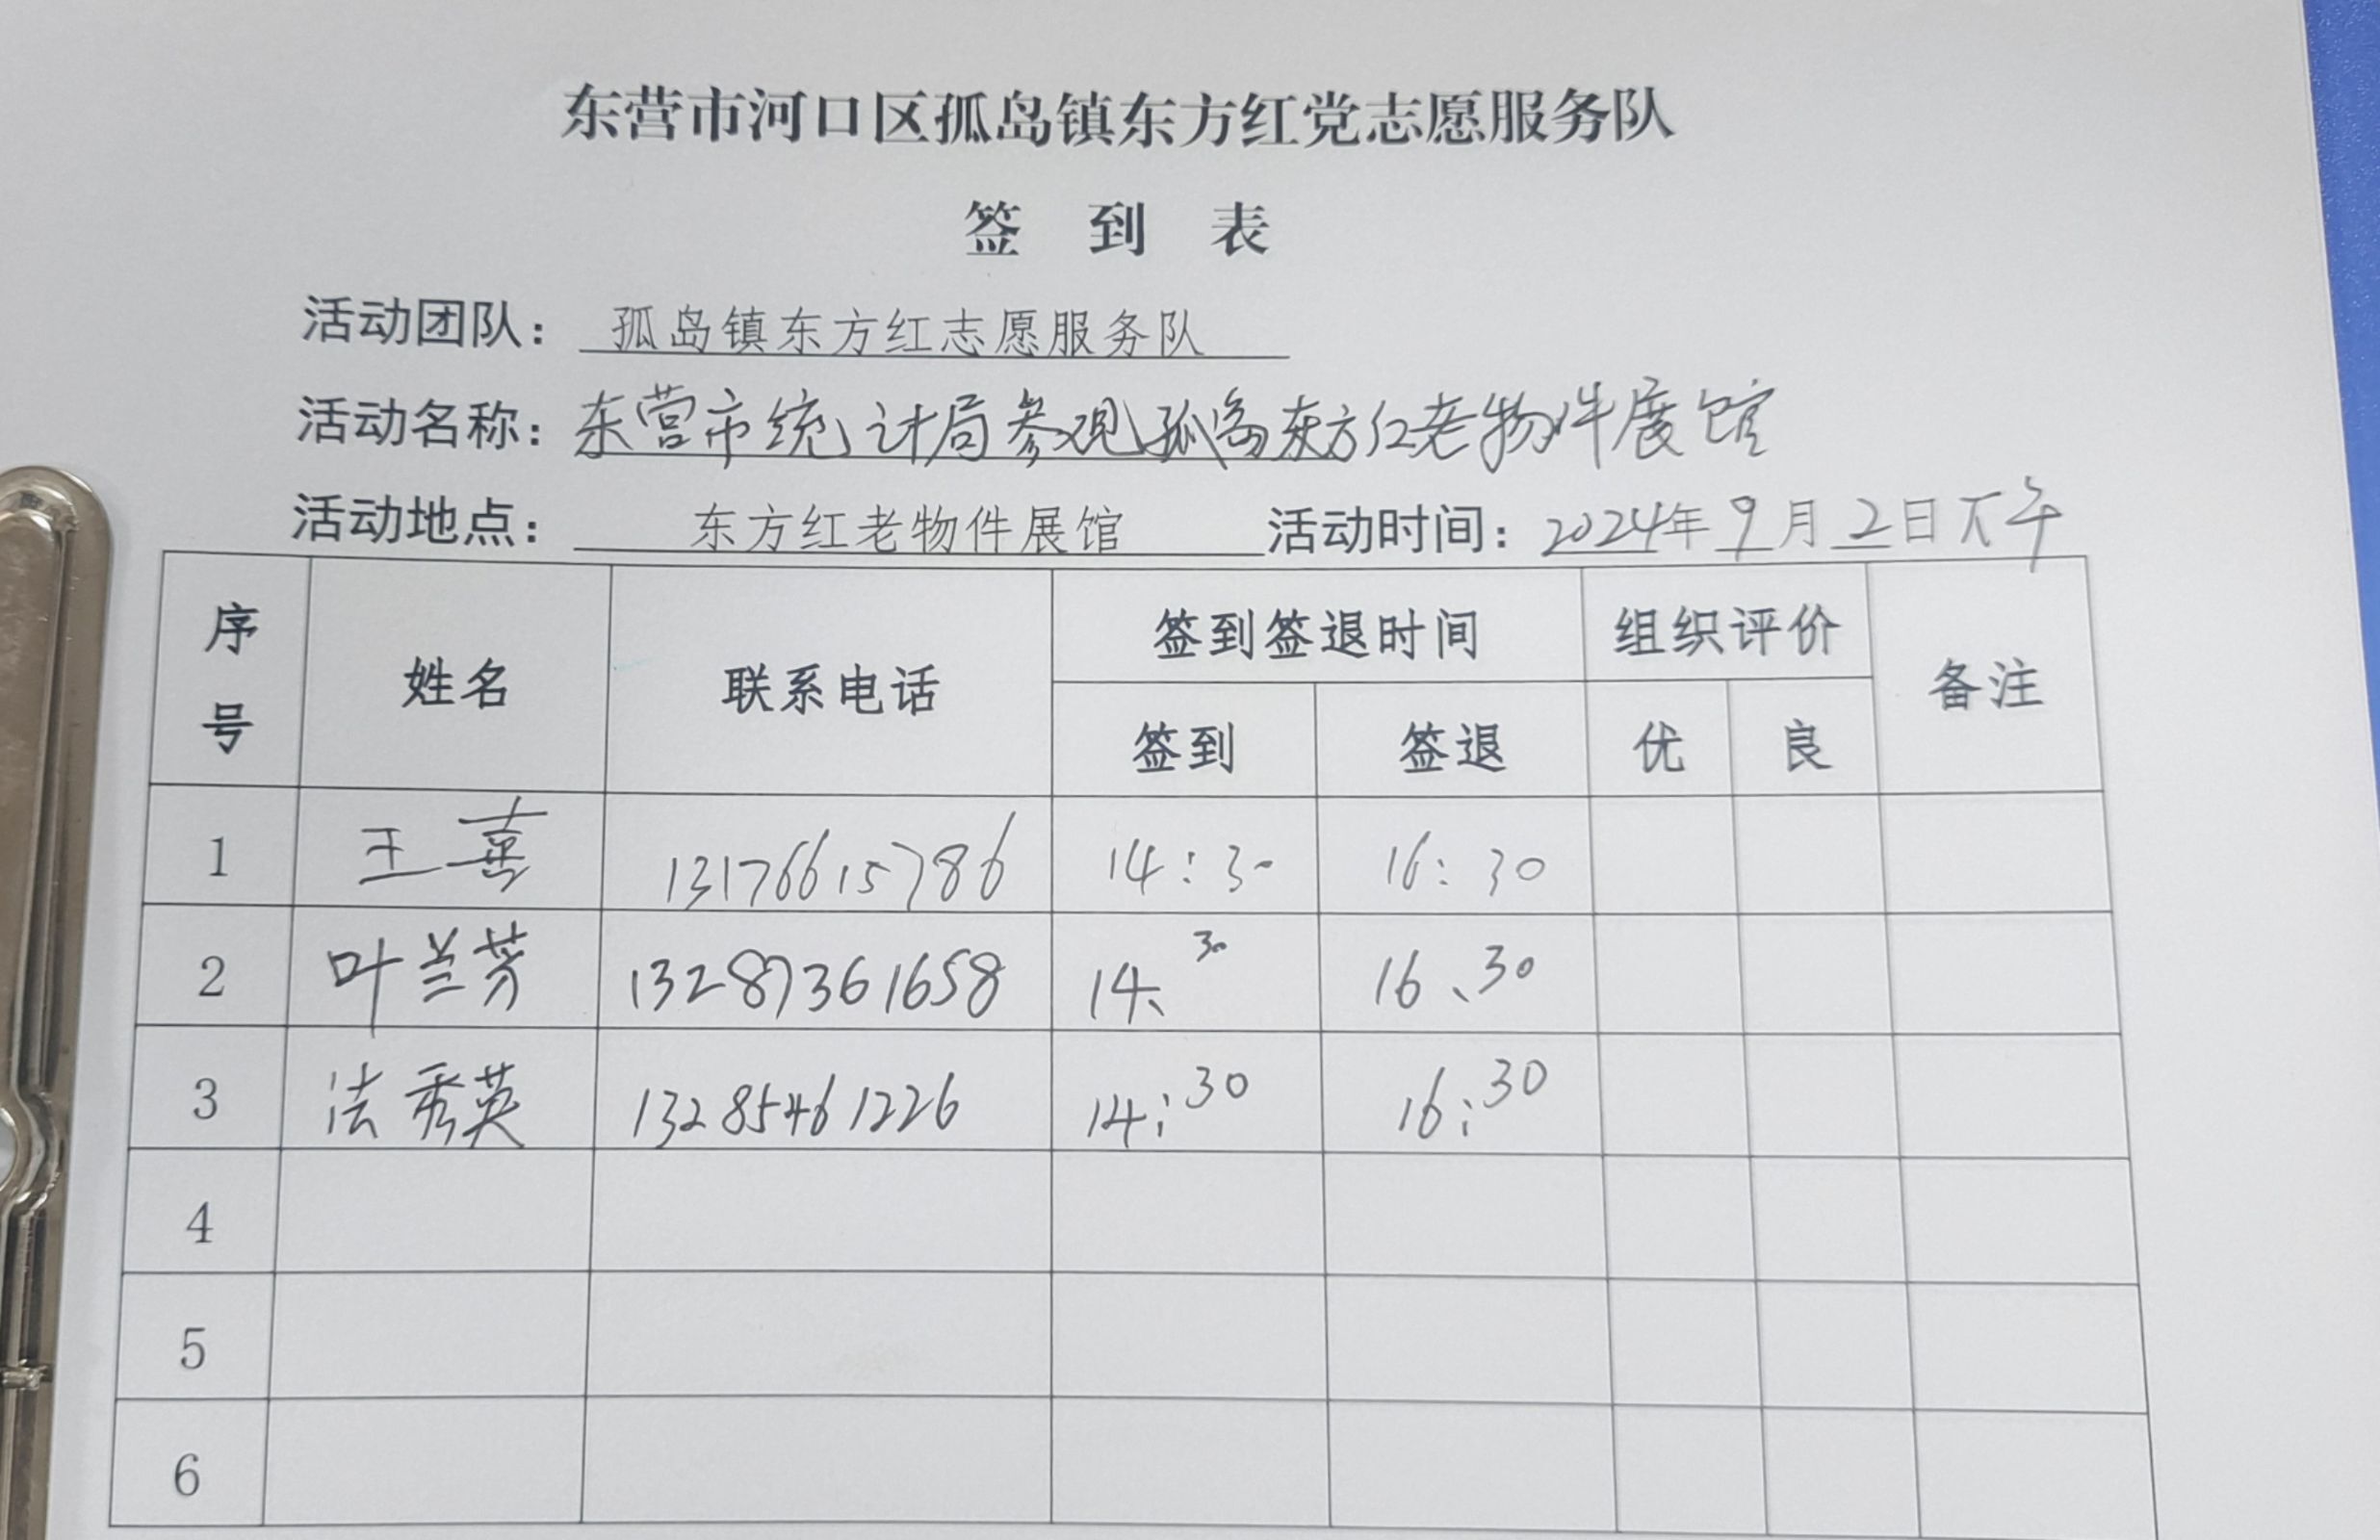 东营市河口区孤岛镇东方红党志愿服务队
签 到 表
活动团队： 孤岛镇东方红志愿服务队
活动名称：东营市统计局参观孤岛东方红老物件展馆
活动地点： 东方红老物件展馆 活动时间：2024年9月2日下午
序号 姓名 联系电话 签到签退时间 组织评价 备注
签到 签退 优 良
1 王喜 13176615786 14:30 16:30
2 叶兰芳 13287361658 14、30 16、30
3 法秀英 13285461226 14:30 16:30
4
5
6